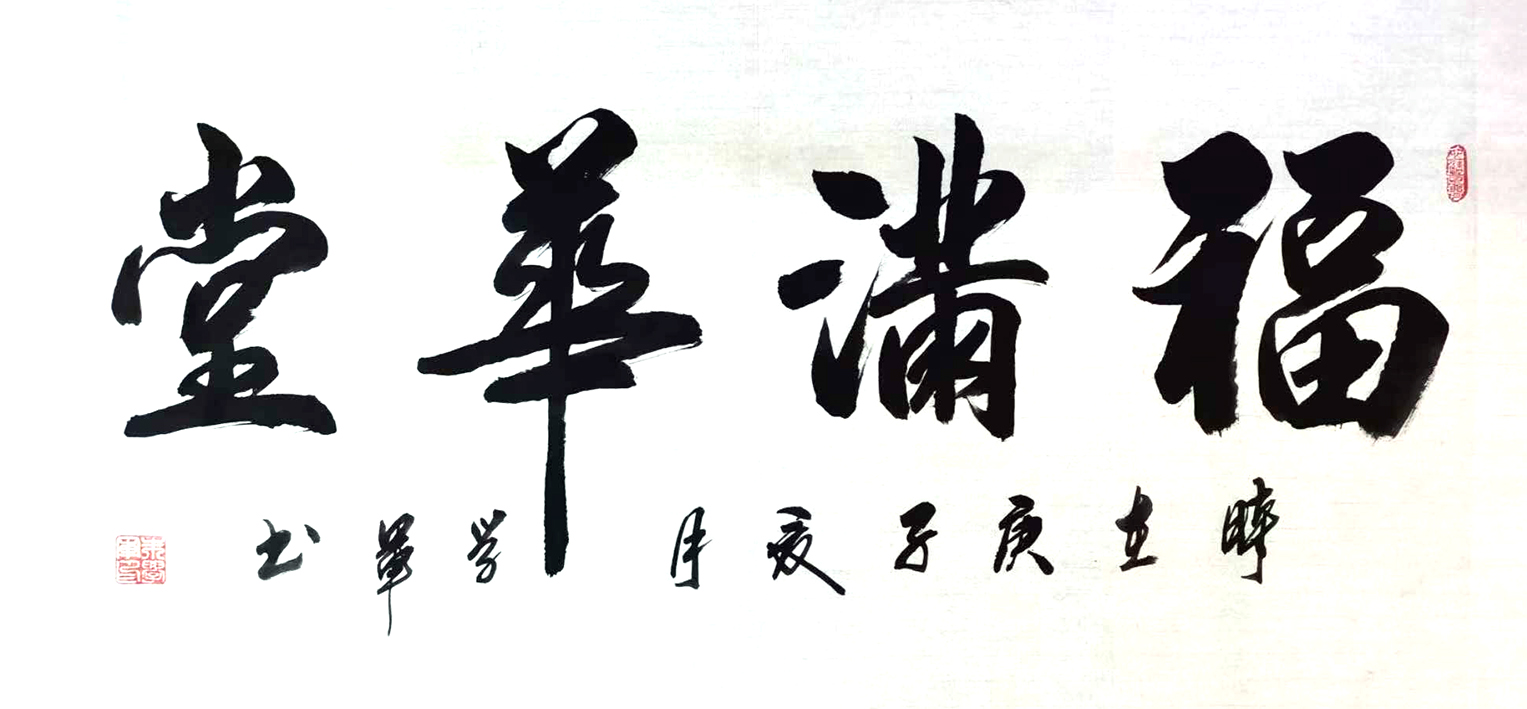 福滿華堂
時在庚子夏月學軍書